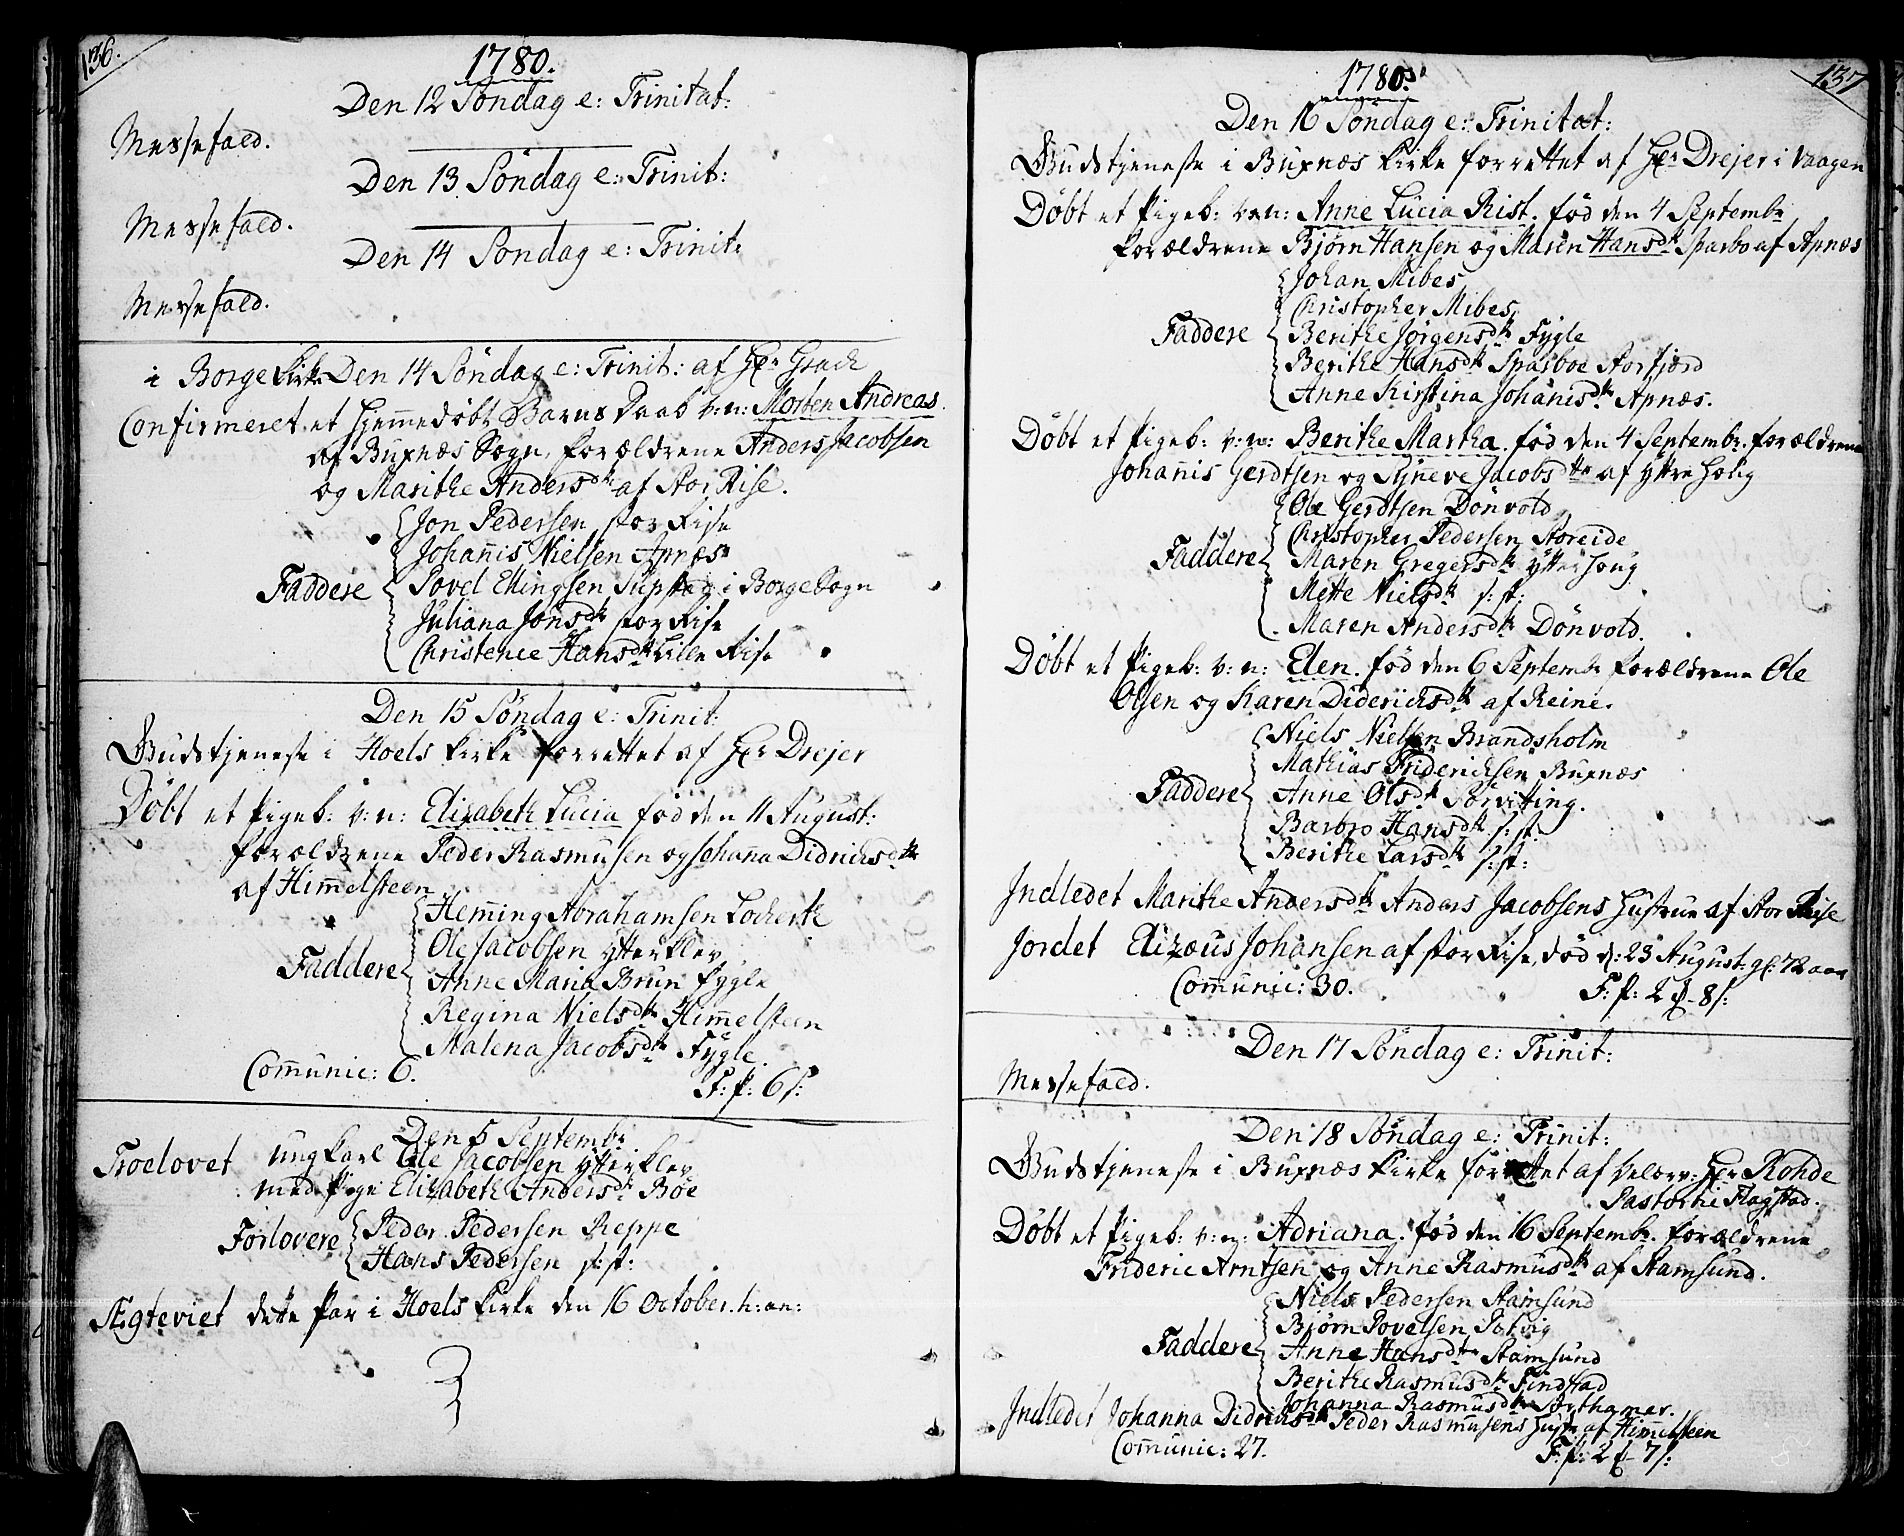 136.
1780.
Den 12 Søndag e: Trinitat:
Messefald.
Den 13 Søndag e: Trinit:
Messefald.
Den 14 Søndag e: Trinit:
Messefald.
i Borge Kirke Den 14 Søndag e: Trinit: af Hr
Confirmeret et Hjemmedøbt Barns Daab v: n: Morten Andreas.
af Buxnæs Sogn, forældrene Anders Jacobsen
og Marithe Andersdtr af Stor Rise.
Jon Pedersen stor Rise
Johannis Nielsen Apnæs
Faddere Povel Ellingsen i Borge Sogn
Juliana Jonsdtr stor Rise
Christence Hansdtr Lille Rise
Den 15 Søndag e: Trinit:
Gudstjeneste i Hoels Kirke forrettet af Hr Drejer
Døbt et Pigeb: v: n: Elizabeth Lucia fød den 11 August:
forældrene Peder Rasmusen og Johanna Didrichsdtr
af Himmelsteen
Hemming Abrahamsen
Ole Jacobsen ytterklev
Faddere Anne Maria Brun Fygle
Regina Nielsdtr Himmelsteen
Malena Jacobsdtr Fygle.
Communic: 6.
F: p: 6 s:
Den 5 Septembr
Troelovet ungkarl Ole Jacobsen ytterklev
med Pige Elizabeth Andersdtr Bøe
Forlovere Peder Pedersen Reppe
Hans Pedersen s: st:
Ægteviet dette Par i Hoels Kirke den 16 October. h: an:
137
1780.
Den 16 Søndag e: Trinitat:
Gudstjeneste i Buxnæs Kirke forrettet af Hr Drejer i Vaagen
Døbt et Pigeb: v: n: Anne Lucia Rist. fød den 4 Septembr
forældrene Bjørn Hansen og Maren Hansdtr Sparbo af Apnæs
Johan Mibes
Christopher Mibes
Faddere Berithe Jørgensdtr Fygle
Berithe Hansdtr Sparboe Storfjord
Anne Kirstina Johannisdtr Apnæs.
Døbt et Pigeb: v: n: Berithe Martha. fød den 4 Septembr. forældrene
Johannis Gerdtsen og Synneve Jacobsdtr af yttre
Ole Gerdtsen Dönvold
Christopher Pedersen Storeide
Faddere Maren Gregersdtr ytter
Mette Nielsdtr s: st:
Maren Andersdtr Dönvold.
Døbt et Pigeb: v: n: Elen. fød den 6 Septembr forældrene Ole
Olsen og Karen Diderichsdtr af Reine.
Niels Nielsen Brandsholm
Mathias Friderichsen Buxnæs
Faddere Anne Olsdtr
Barbro Hansdtr s: st:
Berithe Larsdtr s: st:
Indledet Marithe Andersdtr Anders Jacobsens Hustrue af Stor Rise
Jordet Elizæus Johansen af stor Rise, død d: 23 August. gl: 72 aar
Communic: 30.
F: p: 2 8 s:
Den 17 Søndag e: Trinit:
Messefald.
Den 18 Søndag e: Trinit:
Gudstjeneste i Buxnæs Kirke forrettet af Velærv: Hr Rohde
Pastor i Flagstad.
Døbt et Pigeb: v: n: Adriana. fød den 16 Septembr. forældrene
Frideric Arntsen og Anne Rasmusdtr af Stamsund.
Niels Pedersen Stamsund
Bjørn Povelsen
Faddere Anne Hansdtr Stamsund
Berithe Rasmusdtr Findstad
Johanna Rasmusdtr
Indledet Johanna Didrichsdtr Peder Rasmusens Hustr af Himmelsteen
Communic: 27.
F: p: 2 7 s: